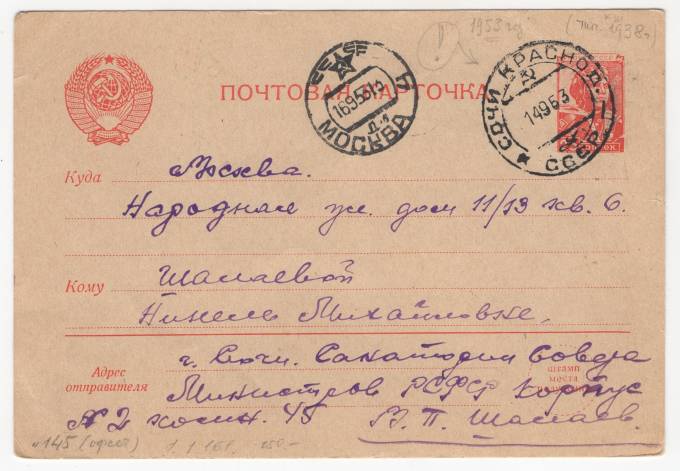 1953 год
(тип. 1938г)
ПОЧТОВАЯ КАРТОЧКА
СССР
16953 13
МОСКВА
СОЧИ КРАСНОД.
14953
СССР
Куда
Москва.
Народная ул. дом 11/13 кв. 6.
Кому
Шамаевой
Нинель Михайловне.
Адрес отправителя
г. Сочи. Санаторий Совета
Министров РСФСР Корпус
№ 2 комн. 45 В. П. Шамаев.
штамп
места
№145 (офсет) 1.1.1б1. 250-